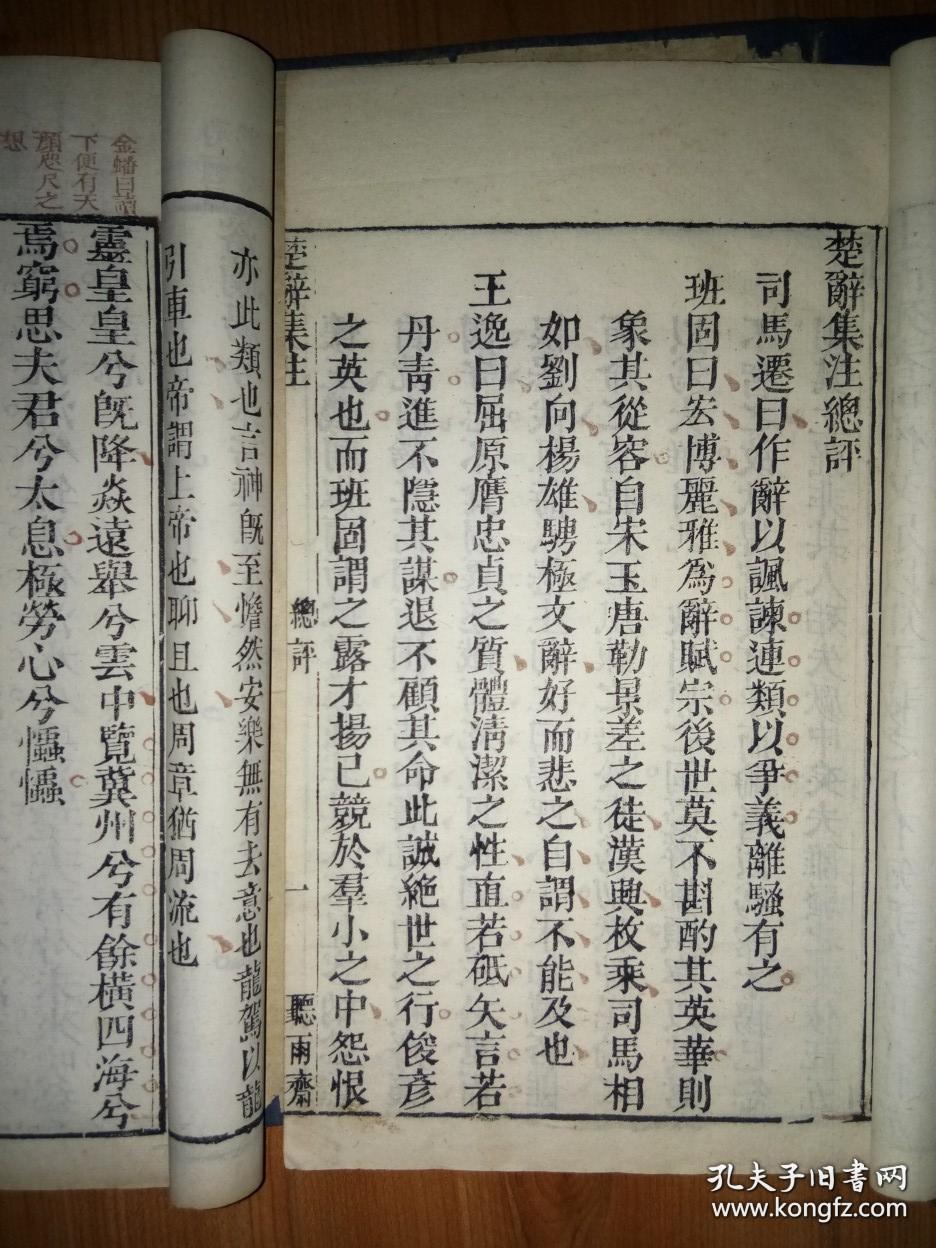 楚辭集注總評
司馬遷曰作辭以諷諫連類以爭義離騷有之
班固曰宏博麗雅為辭賦宗後世莫不斟酌其英華則
象其從容自宋玉唐勒景差之徒漢興枚乘司馬相
如劉向楊雄騁極文辭好而悲之自謂不能及也
王逸曰屈原膺忠貞之質體清潔之性直若砥矢言若
丹青進不隱其謀退不顧其命此誠絕世之行俊彥
之英也而班固謂之露才揚己競於羣小之中怨恨
楚辭集注 總評 一 聽雨齋
亦此類也言神旣至憺然安樂無有去意也龍駕以龍
引車也帝謂上帝也聊且也周章猶周流也
金蟠曰讀
下便有天
顏咫尺之
想
靈皇皇兮旣降焱遠舉兮雲中覽冀州兮有餘橫四海兮
焉窮思夫君兮太息極勞心兮㦀㦀
孔夫子旧书网
www.kongfz.com